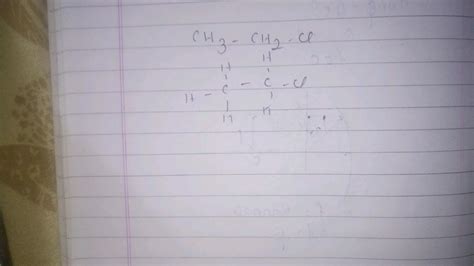 CH3 - CH2 - Cl
H H
H - C - C - Cl
H H